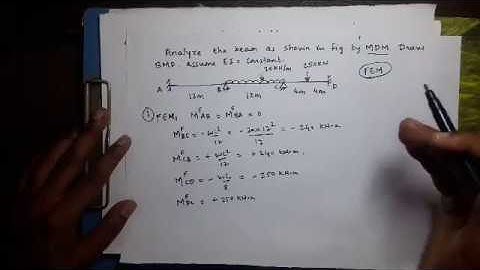 Analyze the beam as shown in fig by MDM Draw
BMD. Assume EI = constant.
20kN/m 250kN
FEM
A B C D
12m 12m 4m 4m
① FEM, M^F_AB = M^F_BA = 0
M^F_BC = -wl²/12 = -20×12²/12 = -240 kN-m
M^F_CB = +wl²/12 = +240 kN-m,
M^F_CD = -wl/8 = -250 kN-m
M^F_DC = +250 kN-m